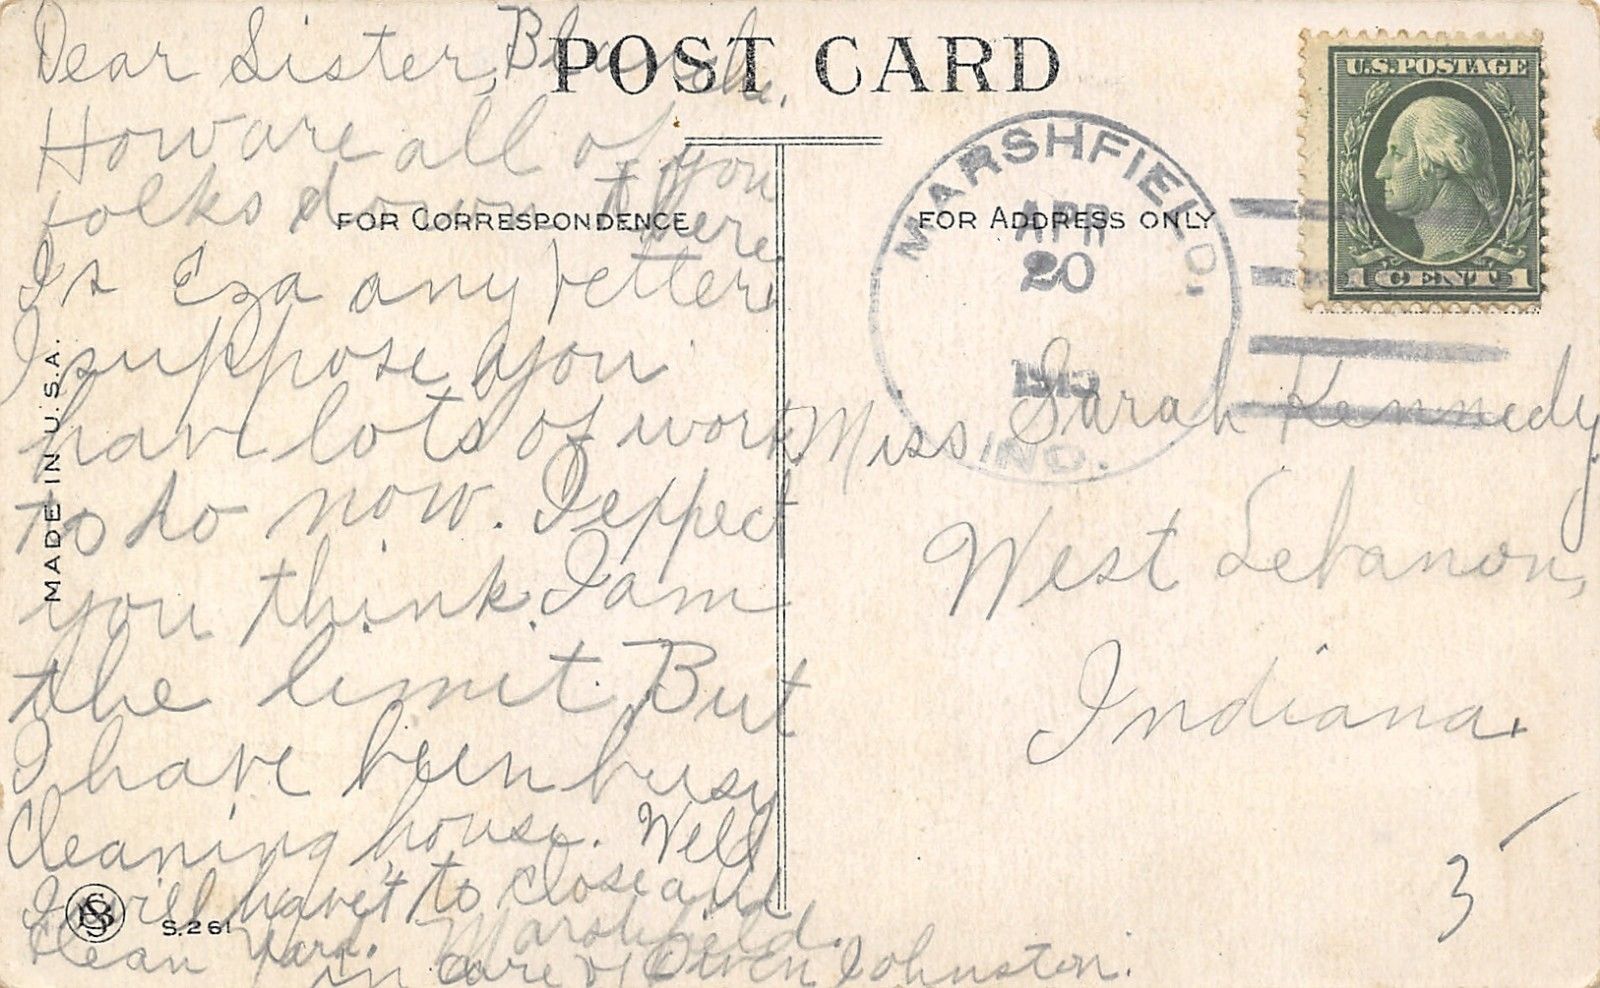 POST CARD
Dear Sister, Blanche.
How are all of you
folks down there
Is Eza any better
I suppose you
have lots of work
to do now. I exppect
you think I am
the limit. But
I have been busy
Cleaning house. Well
I will have't to close and
clean Yard. Marshfield.
in care of Owen Johnston.
FOR CORRESPONDENCE
MADE IN U.S.A.
S.261
FOR ADDRESS ONLY
MARSHFIELD,
APR
20
IND.
U.S. POSTAGE
1 CENT 1
Miss Sarah Kennedy
West Lebanon,
Indiana.
3